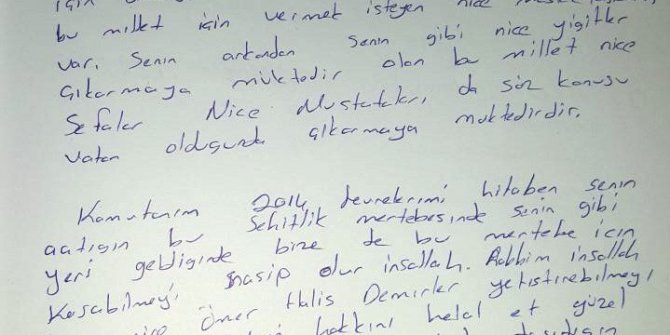 için
bu millet için vermek isteyen nice
var. Senin arkandan senin gibi nice yiğitler
Çıkarmaya müktedir olan bu millet nice
Sefalar Nice Mustafaları, da söz konusu
vatan olduğunda çıkarmaya muktedirdir.
Komutanım 2014 devrelerimi hitaben senin
açtığın bu Şehitlik mertebesinde senin gibi
yeri geldiğinde bize de bu mertebe için
Koşabilmeyi nasip olur inşallah. Rabbim inşallah
Ömer Halis Demirler yetiştirebilmeyi
hakkını helal et güzel